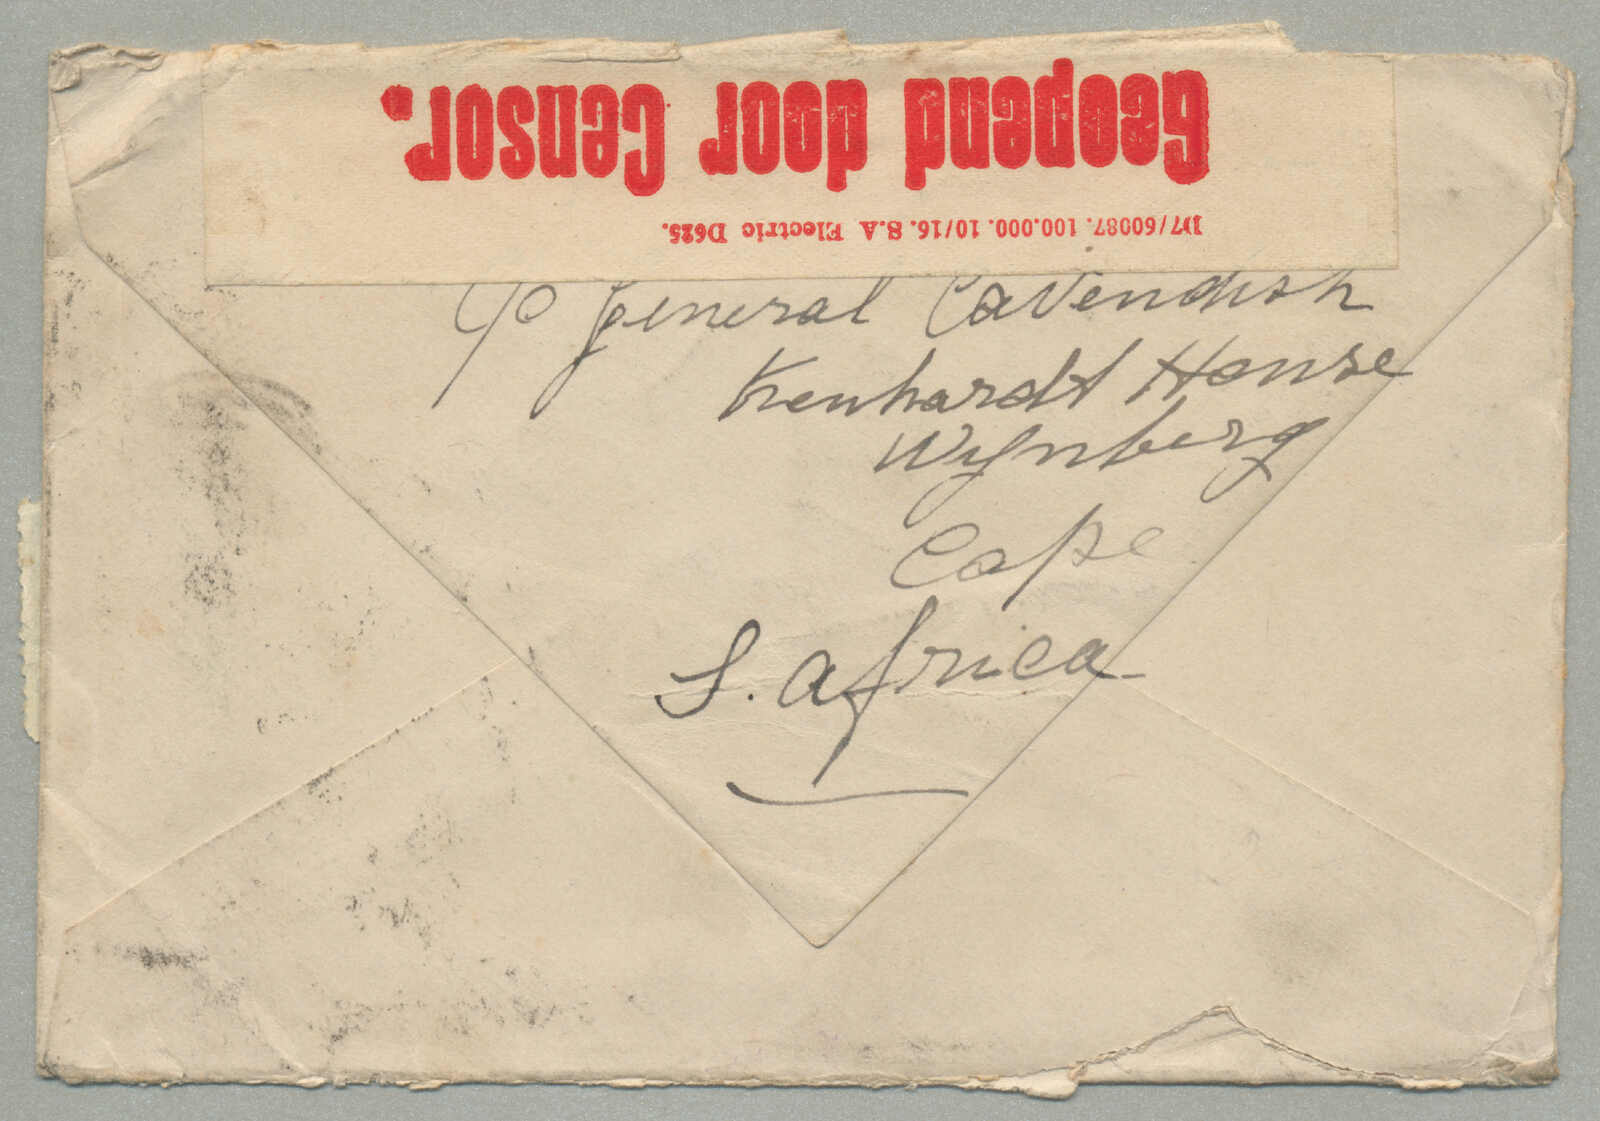 Geopend door Censor.
D7/60087. 100.000. 10/16. S.A Electric D625.
C/o General Cavendish
Kenhardt House
Wynberg
Cape
S. Africa